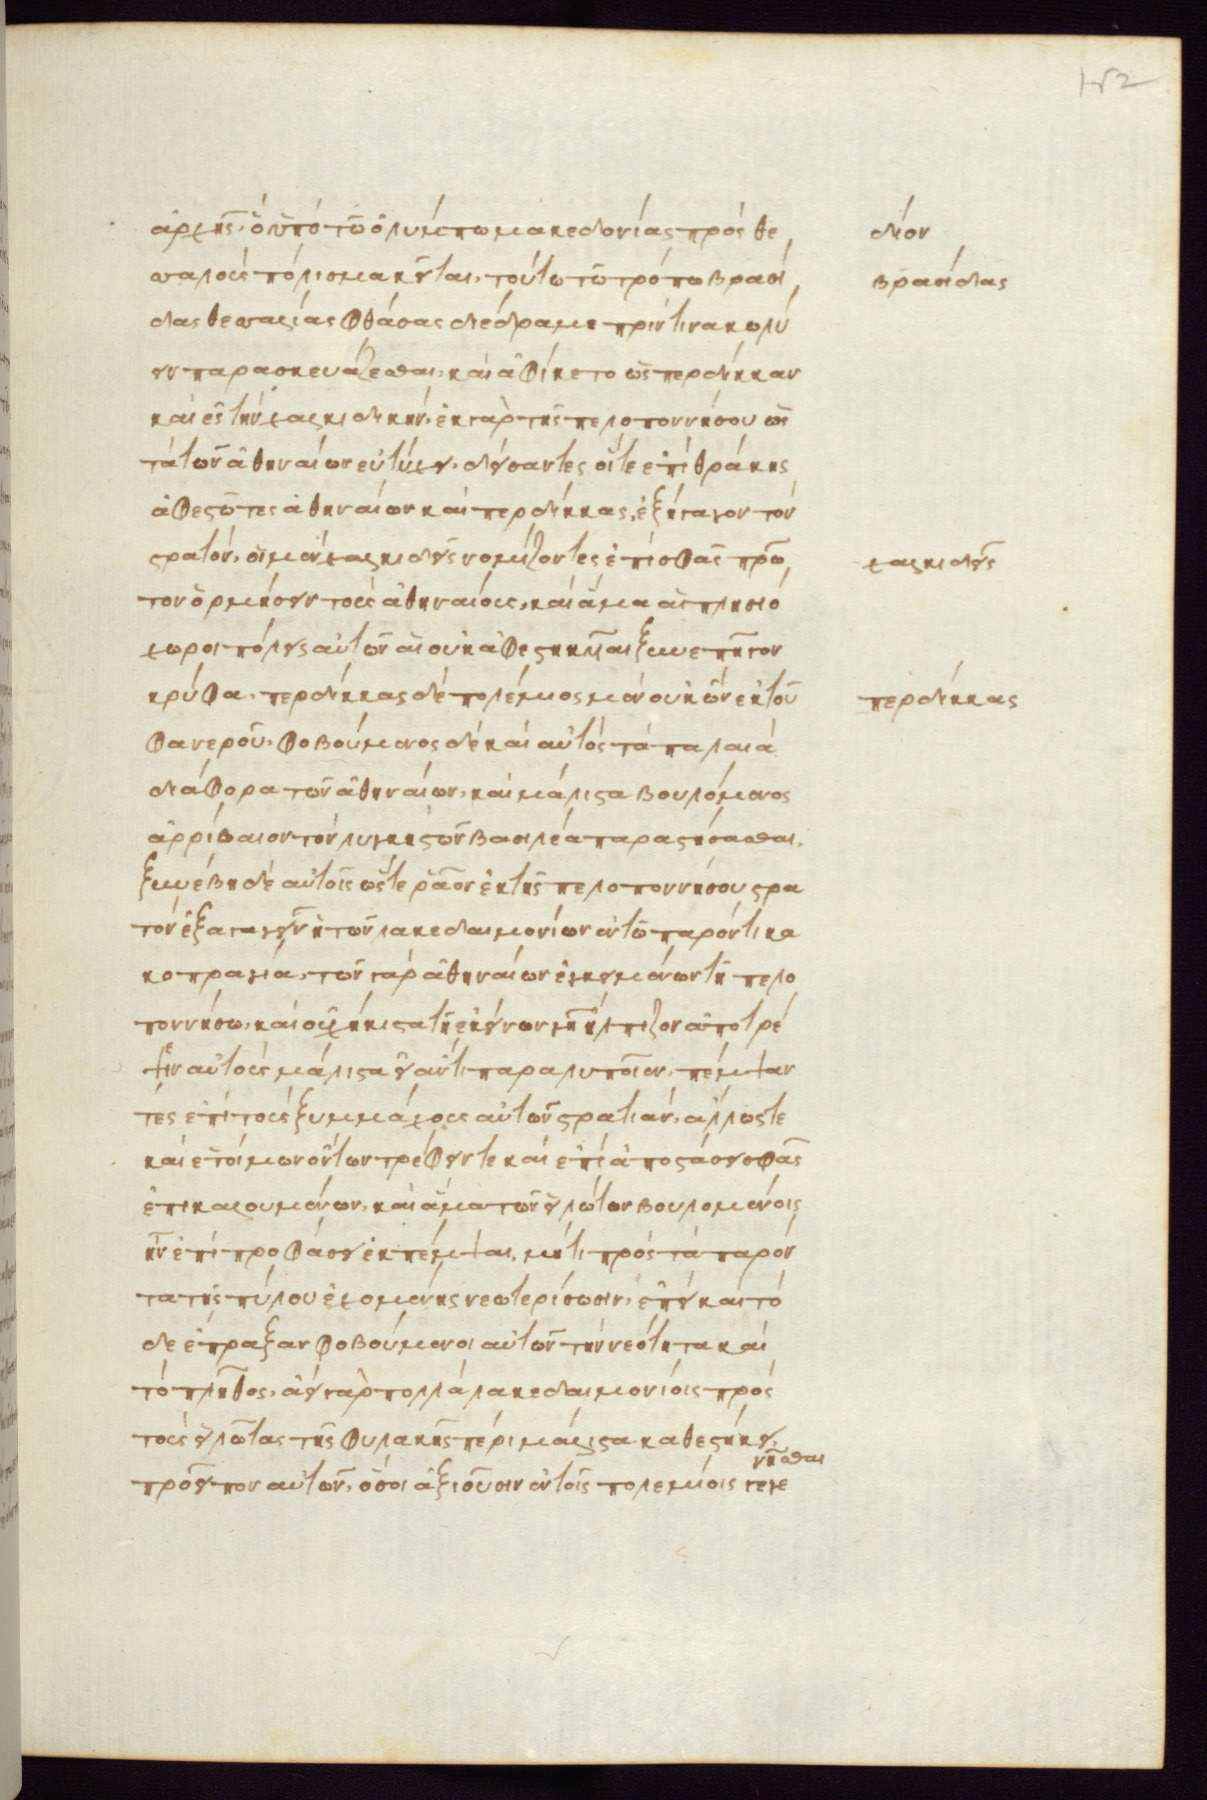 ἀρχῆς, ὃ ὑπὸ τῶ ὀλύμπω μακεδονίας πρὸς θε
σσαλοὺς πόλισμα κεῖται. τούτω τῶ τρόπω βρασί
δας θεσσαλίας φθάσας διέδραμε πρίν τινα κωλύ
ειν παρασκευάζεσθαι. καὶ ἀφίκετο ὡς περδίκκαν
καὶ ἐς τὴν χαλκιδικήν. ἐκ γὰρ τῆς πελοποννήσου ὡς
τὰ τῶν ἀθηναίων εὐτύχει, δείσαντες οἵτε ἐπὶ θράκης
ἀφεστῶτες ἀθηναίων καὶ περδίκκας, ἐξήγαγον τὸν
στρατόν. οἱ μὲν χαλκιδεῖς νομίζοντες ἐπὶ σφᾶς πρῶ
τον ὁρμήσειν τοὺς ἀθηναίους, καὶ ἅμα αἱ πλησιό
χωροι πόλεις αὐτῶν αἱ οὐκ ἀφεστηκυῖαι ξυνεπῆγον
κρύφα. περδίκκας δὲ πολέμιος μὲν οὐκ ὢν ἐκ τοῦ
φανεροῦ. φοβούμενος δὲ καὶ αὐτὸς τὰ παλαιὰ
διάφορα τῶν ἀθηναίων. καὶ μάλιστα βουλόμενος
ἀρρίβαιον τὸν λυγκηστῶν βασιλέα παραστήσασθαι.
ξυνέβη δὲ αὐτοῖς ὥστε ῥᾶον ἐκ τῆς πελοποννήσου στρα
τὸν ἐξαγαγεῖν ἡ τῶν λακεδαιμονίων ἐν τῶ παρόντι κα
κοπραγία. τῶν γὰρ ἀθηναίων ἐγκειμένων τῆ πελο
ποννήσω. καὶ οὐχ ἥκιστα τῆ ἐκείνων γῆ ἤλπιζον ἀποτρέ
ψειν αὐτοὺς μάλιστα εἰ ἀντιπαραλυποῖεν. πέμψαν
τες ἐπὶ τοὺς ξυμμάχους αὐτῶν στρατιάν. ἄλλως τε
καὶ ἑτοίμων ὄντων τρέφειν τε καὶ ἐπὶ ἀποστάσει σφᾶς
ἐπικαλουμένων. καὶ ἅμα τῶν εἱλώτων βουλομένοις
ἦν ἐπὶ προφάσει ἐκπέμψαι. μή τι πρὸς τὰ παρόν
τα τῆς πύλου ἐχομένης νεωτερίσωσιν. ἐπεὶ καὶ τό
δε ἔπραξαν φοβούμενοι αὐτῶν τὴν νεότητα καὶ
τὸ πλῆθος. ἀεὶ γὰρ πολλὰ λακεδαιμονίοις πρὸς
τοὺς εἵλωτας τῆς φυλακῆς πέρι μάλιστα καθεστήκει.
προεῖπον αὐτῶν. ὅσοι ἀξιοῦσιν ἐν τοῖς πολεμίοις γεγε
νῆσθαι
δῖον
βρασίδας
χαλκιδεῖς
περδίκκας
152